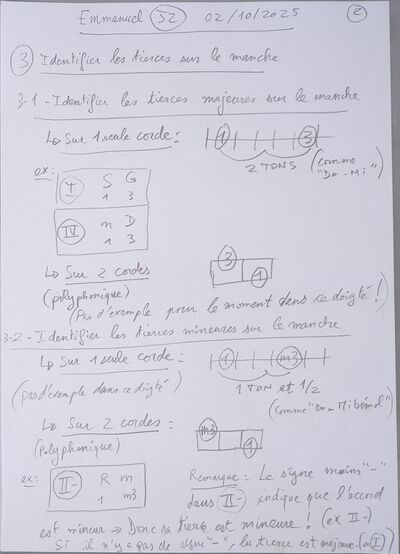 Emmanuel 52 02/10/2025 2
3 Identifier les tierces sur le manche
3-1 - Identifier les tierces majeures sur le manche
↳ Sur 1 seule corde : 1 3
2 TONS (comme "Do-Mi")
ex:
I S G
1 3
IV m D
1 3
↳ Sur 2 cordes 3
(polyphonique) 1
(Pas d'exemple pour le moment dans ce doigté !)
3-2 - Identifier les tierces mineures sur le manche
↳ Sur 1 seule corde : 1 m3
(pas d'exemple dans ce doigté) 1 TON et 1/2
(Comme "Do-Mi bémol")
↳ Sur 2 cordes : m3
(Polyphonique) 1
ex: II- R m
1 m3
Remarque : Le signe moins "-"
dans II- indique que l'accord
est mineur → Donc sa tierce est mineure ! (ex II-)
Si il n'y a pas de signe "-" : la tierce est majeure (ex I)